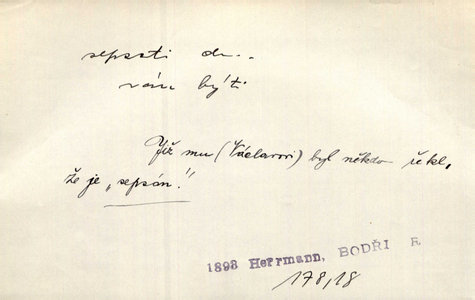 sepsati dk..
ván býti
Již mu (Václavovi) byl někdo řekl,
že je „sepsán“!
1898 Herrmann, BODŘI F
178,18